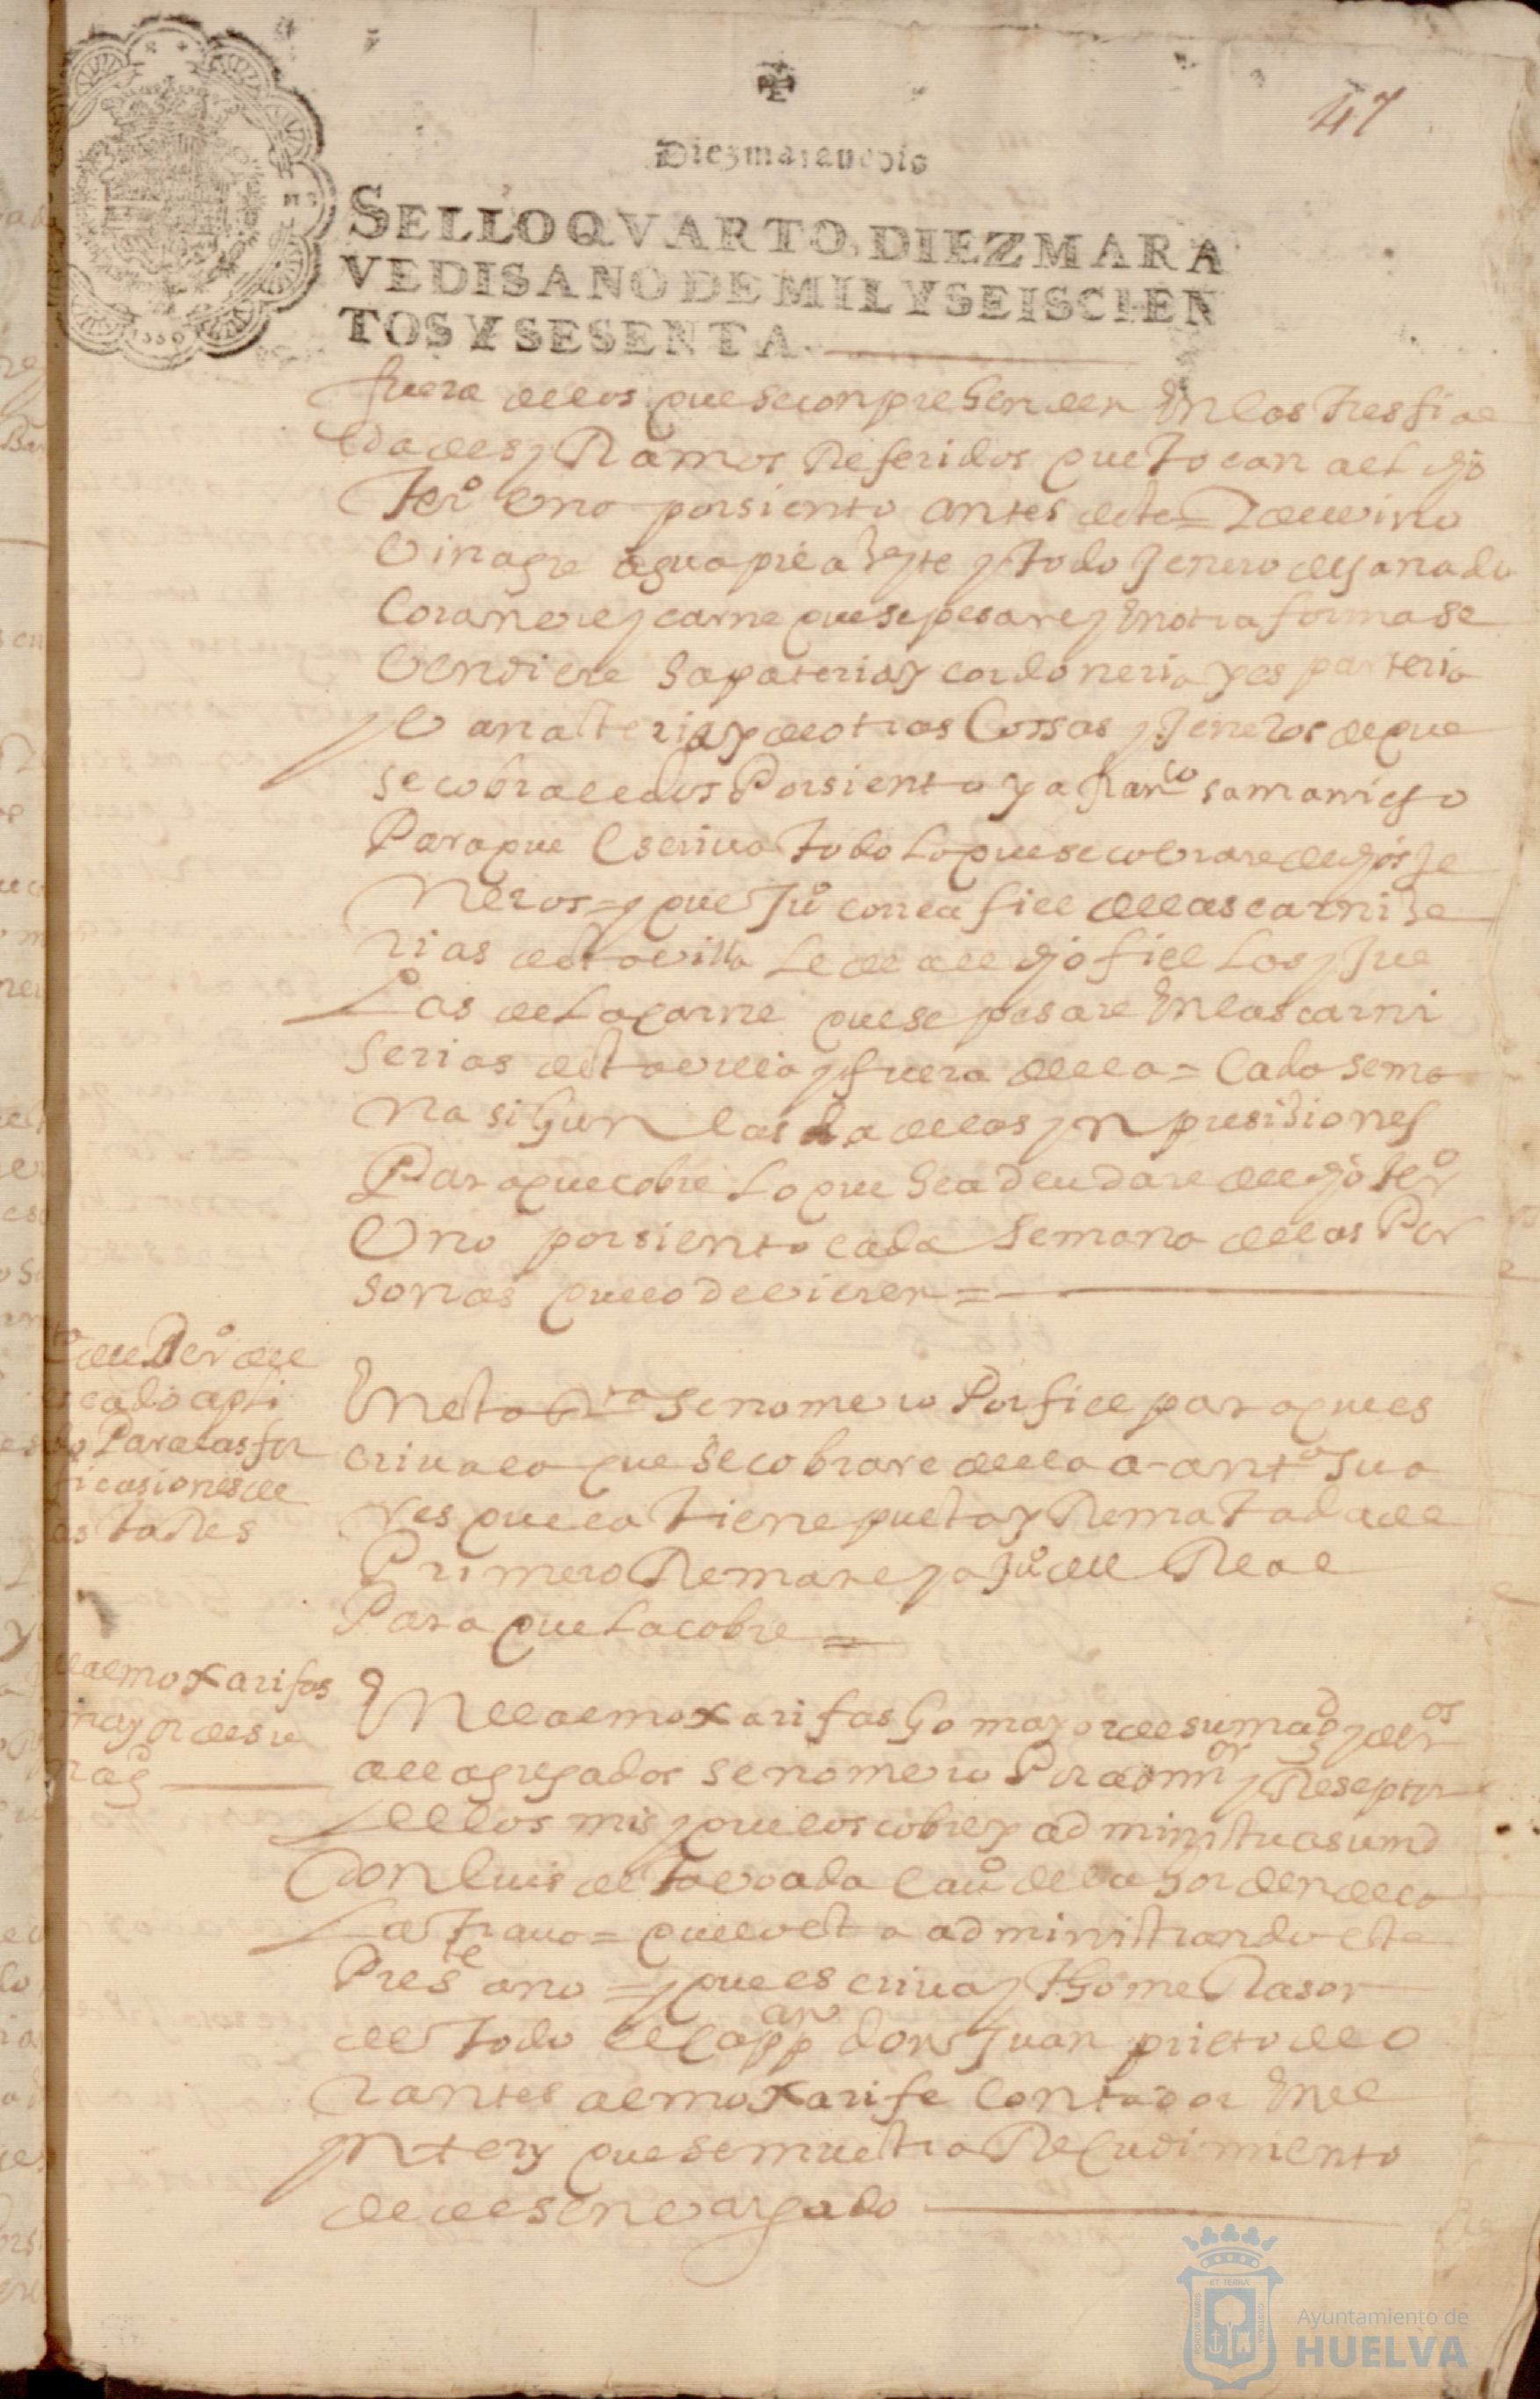 47
Diez marauedis
SELLO QVARTO, DIEZ MARA
VEDIS AÑO DE MIL Y SEISCIEN
TOS Y SESENTA
fuera de los que se conprehenden En las tres fiel
dades y Ramos Referidos que tocan al dho
terº Vno por siento antes deste = Del vino
Vinagre aguapie aseyte y todo Jenero de ganado
y carne que se pesare y En otra forma se
Vendiere Sapateria y cordoneria y esparteria
y de otras Cossas y Jeneros de que
se cobra el dos Por siento y a franco samaniego
Para que Escriua todo Lo que se cobrare de dhos Je
Neros = y que Juº correa fiel de las carnise
rias desta villa Le de al dho fiel Los
de La carne que se pesare En las carni
Serias desta villa y fuera della = Cada sema
Na sigun las da de las ynpusisiones
Para que cobre Lo que Se adeudare del dho terº
Vno por siento cada Semana de las Per
sonas que lo devieren =
del Derº del
cado apli
do Para las for
ficasiones de
En esta Se nombro Por fiel para que es
criua lo que Se cobrare della a antº Jua
res que la tiene puesta y Rematada del
Primero Remate y a Juº del Real
Para que La cobre =
almoxarifasgo
mayor de su
magd
En el almoxarifasgo mayor de su magd y deros
a el agregados se nombro Por admor y Reseptor
dellos mis y que los cobre y administra su md
Don Luis de Taboada Cauº de la horden de
= que lo esta administrando este
Preste año = y que escriua y thome Rason
de todo el Cappan don Juan prieto de O
rantes almoxarife Contador En el
ynterin que se muestra Recudimiento
del desencargado
Ayuntamiento de
HUELVA